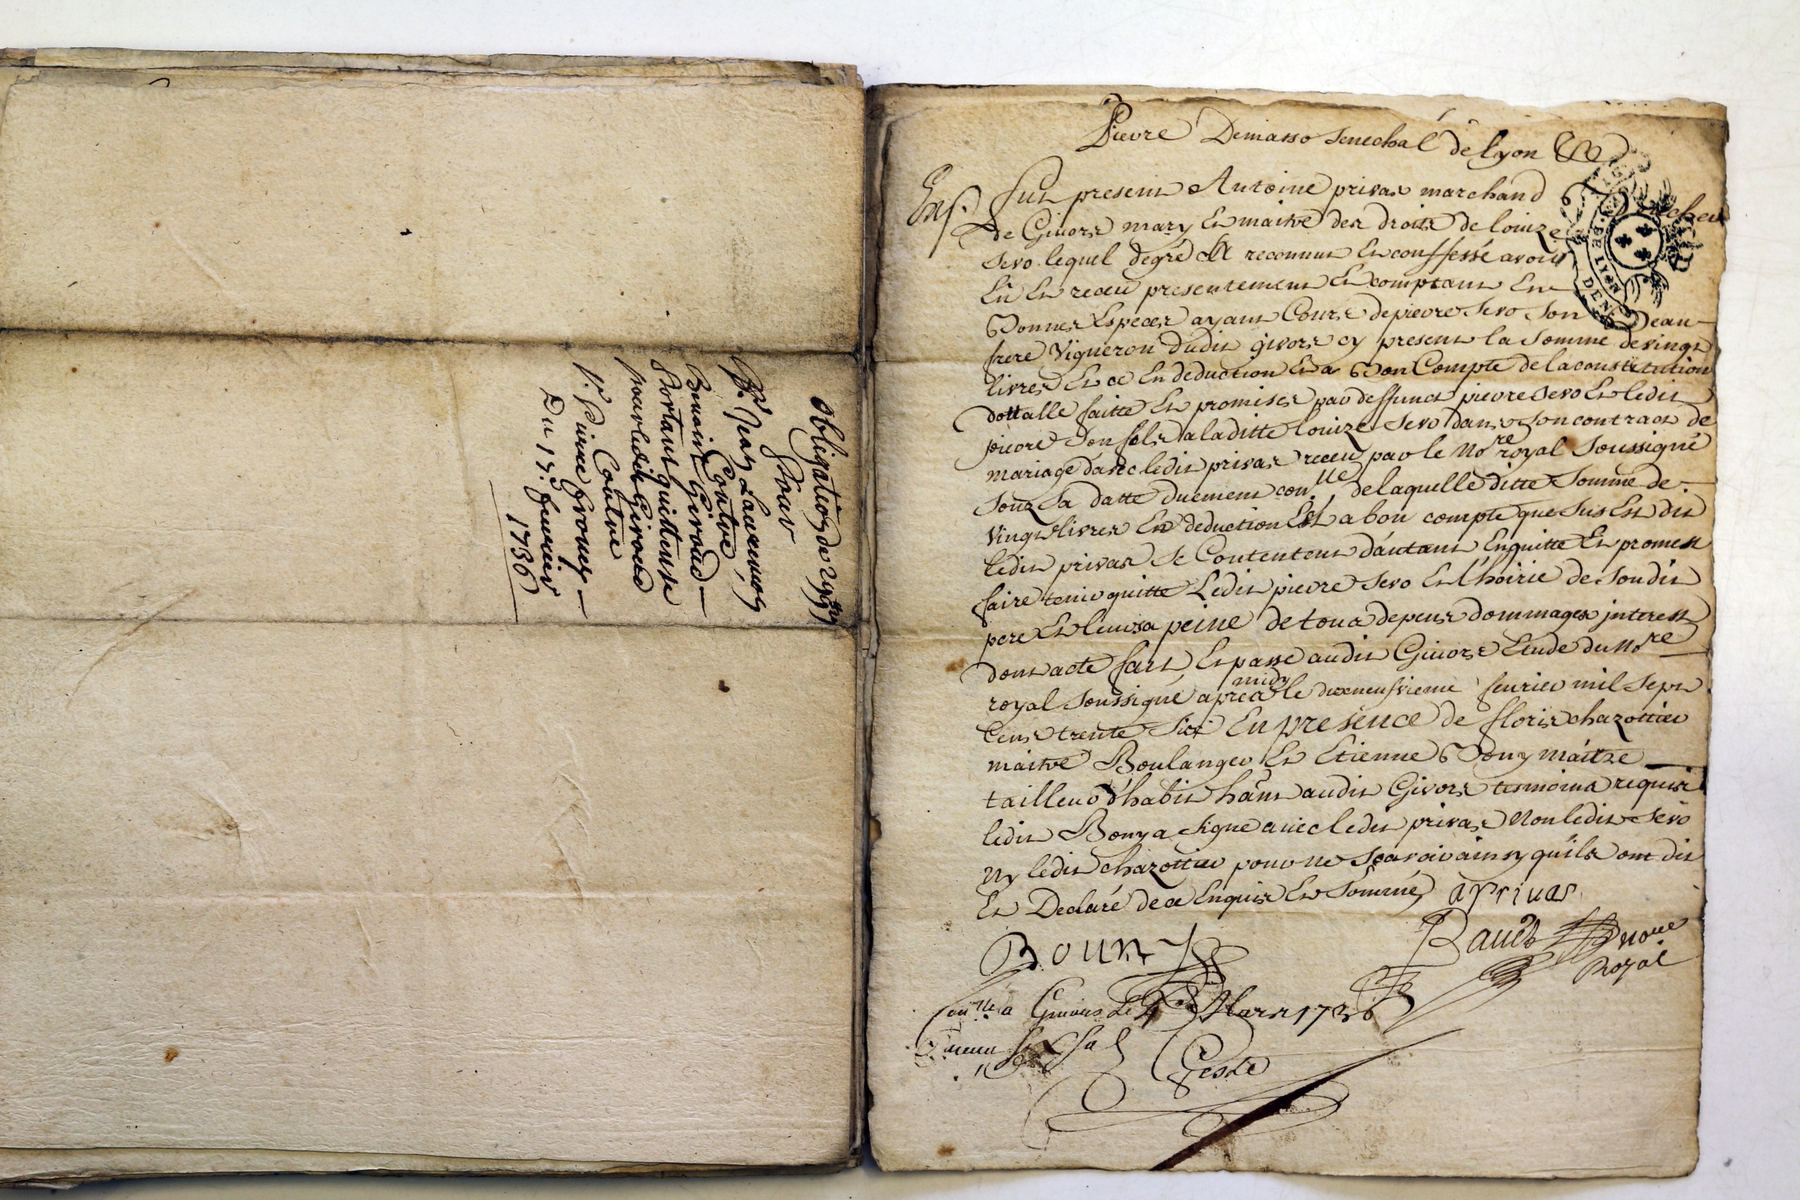 obligatiõn de 2
Pour
Sr. Jean Laurenson
Contre
Benoist Giroud
Portant quittense
pour ledit Giroud
Contre
Sr. Pierre
Du 15e. feurier
1736
Pierre Demasso Senechal de Lyon
fut present Antoine privas marchand
de Giuors mary Et maitre des droits de louize
Sevo lequel degré At reconnut Et conffessé avoir
Eû Et receu presentement Et comptant En
Bonnes Especes ayant Cours de pierre Sevo Son Beau
frere Vigneron dudit givors cy present la Somme de vingt
livres Et ce En deduction Et a Bon Compte de la constitution
dottalle faitte Et promise par deffunct pierre Sevo Et ledit
pierre Son fils a laditte louize Sevo dans Son contract de
mariage d'avec ledit privas receu par le Nore royal Soussigné
Souz Sa datte duement conlle de laquelle ditte Somme de
Vingt livres En deduction Et a bon compte que Sus Est dit
ledit privas Se Contentent d'autant En quitte Et promest
faire tenir quitte Ledit pierre Sevo Et l'hoirie de Sondit
pere Et a peine de tous depens dommages interest
dont acte fait Et passé audit Giuors Etude du Nore
royal Soussigné apres midy le dixneufvieme feurier mil Sept
Cens trente Six En presence de floris chazottier
maitre Boulanger Et Etienne Bony maitre
tailleur d'habit hâns audit Givors tesmoins requis
ledit Bony a Signe avec ledit privas Non ledit Sevo
Ny ledit chazottier pour ne Scavoir ainsy quils ont dit
Et Declaré de ce Enquis Et Sommé aprivas
Bouny
Royal
Conlle a Giuors Le 4e Mars 1736
Receu